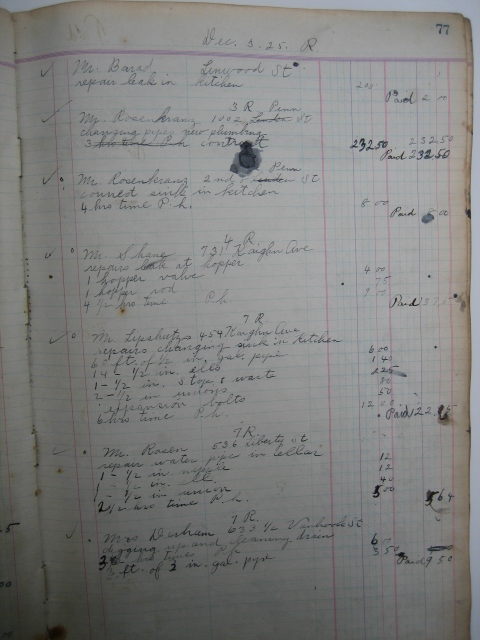 77
Dec. 3. 25. R
Mr. Barad Linwood St
repair leak in kitchen 2 00
Paid 2 00
3 R Penn
Mr. Rosenkranz 1002 St
changing pipes new plumbing
contract 232.50 232.50
Paid 232.50
Penn
Mr. Rosenkranz 2nd St
connect sink in kitchen
4 hrs time P. h. 8 00
Paid 8 00
4 R
Mr. Shane 731 Kaighn Ave
repairs leak at hopper 4 00
1 hopper valve 75
1 hopper rod
4 1/2 hrs time P.h. 9 00
Paid
7 R
Mr. Lipshutz 454 Kaighn Ave
repairs changing sink in kitchen
ft. of 1/2 in. gal. pipe 6 00
14 - 1/2 in. ells 1 40
1 - 1/2 in. stop & waste
2 - 1/2 in unions 80
expansion bolts 50
6 hrs time P. h. 12 00
Paid 22.
7 R.
Mr. Rosen 536 Liberty St
repair water pipe in cellar
1 - 1/2 in. nipple 12
1 - 1/2 in. ell 12
1 - 1/2 in. union 40
2 1/2 hrs time P. h. 5 00
5 64
7 R.
Mrs Durham 633 1/2 St
digging up and cleaning drain
hrs time P.h 6
3 ft. of 2 in. gal. pipe 3.50
Paid 9 50